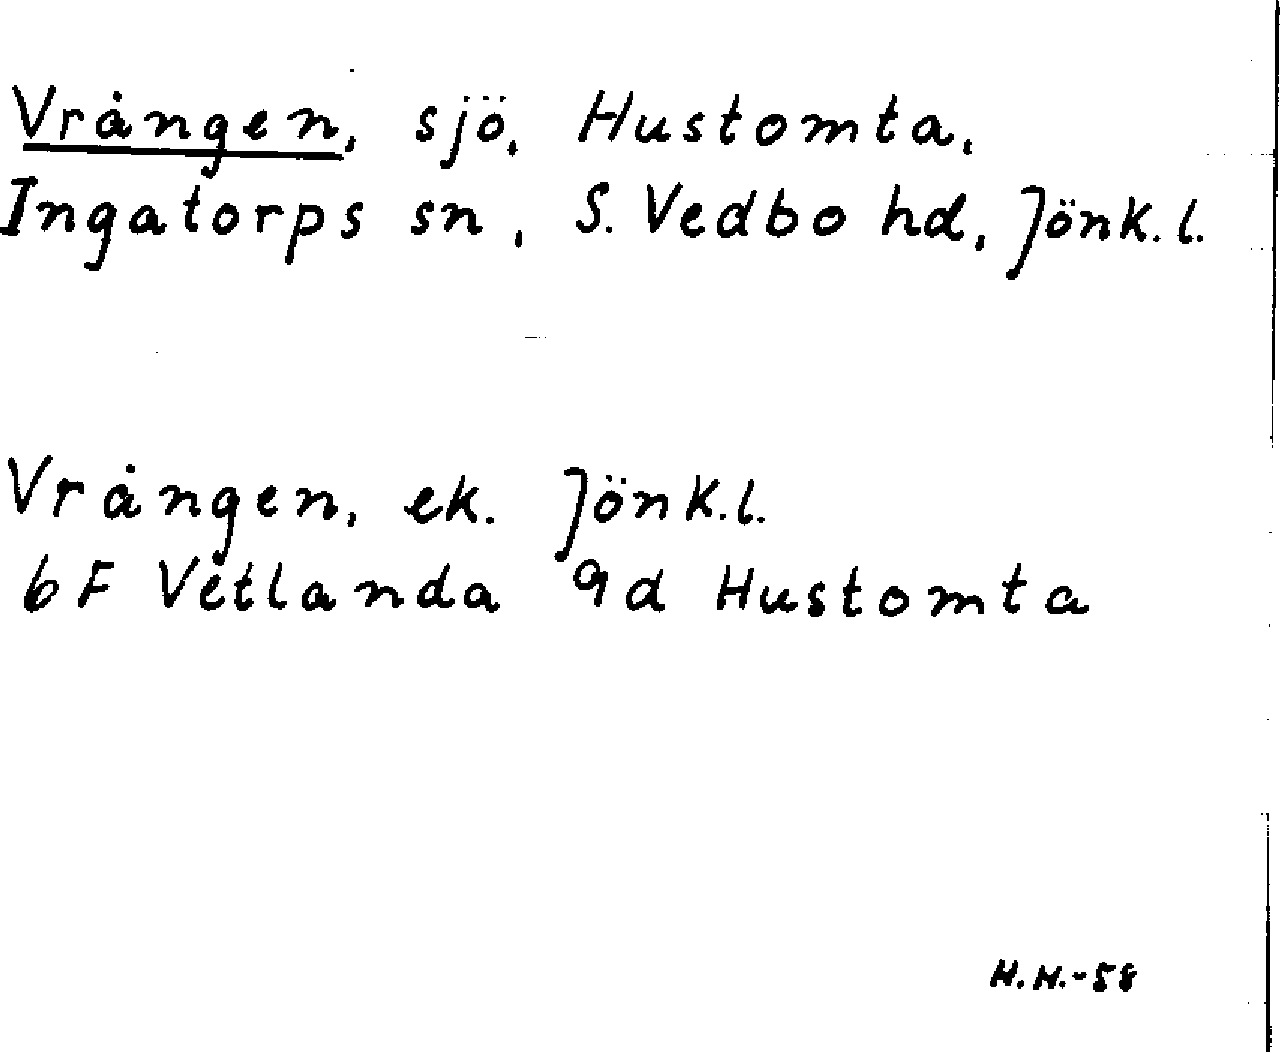 Vrången, sjö, Hustomta,
Ingatorps sn, S. Vedbo hd, Jönk. l.
Vrången, ek. Jönk. l.
6F Vetlanda 9d Hustomta
H.H.-58